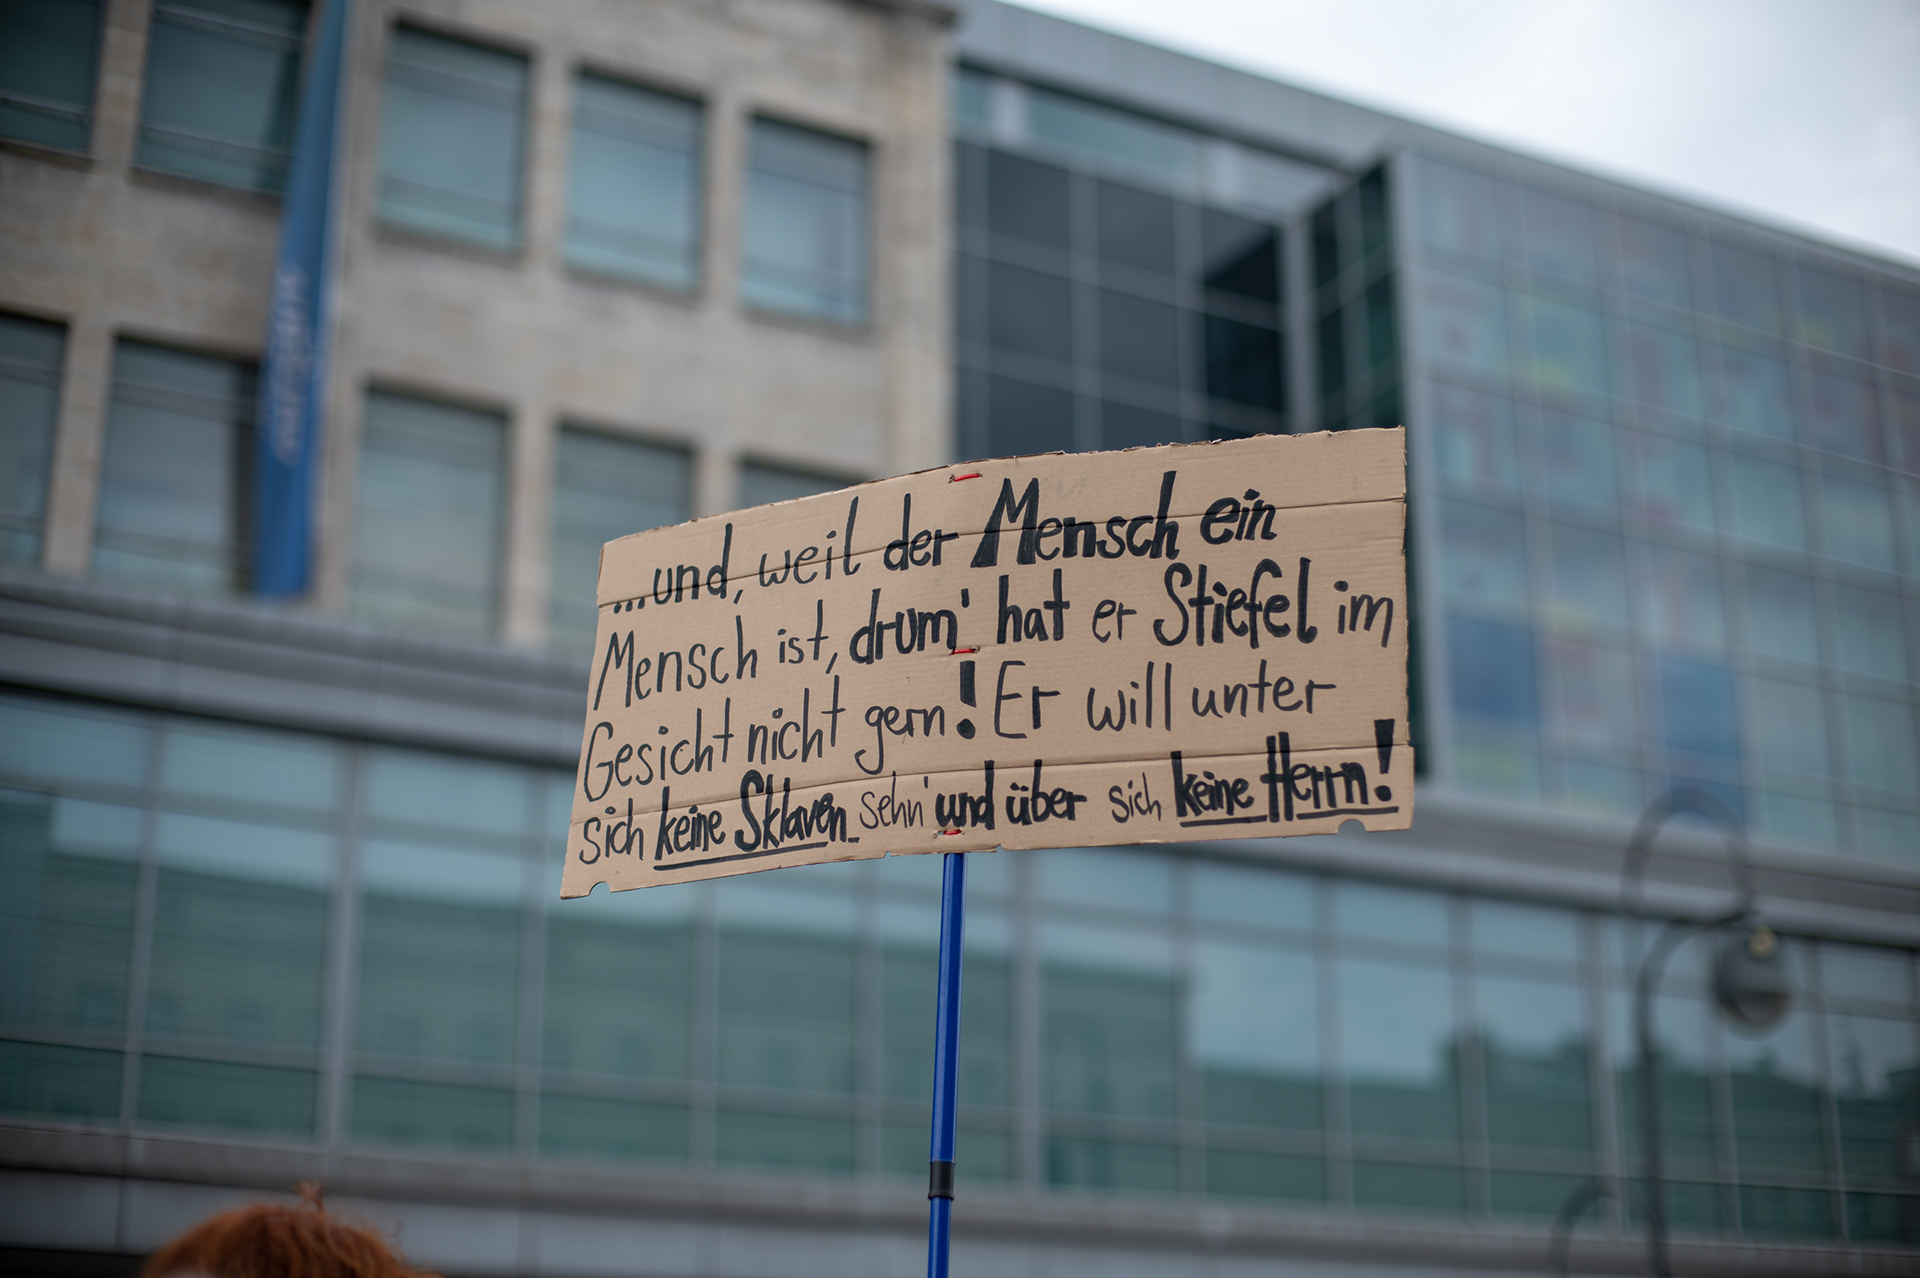 ...und, weil der Mensch ein
Mensch ist, drum' hat er Stiefel im
Gesicht nicht gern! Er will unter
sich keine Sklaven sehn' und über sich keine Herrn!